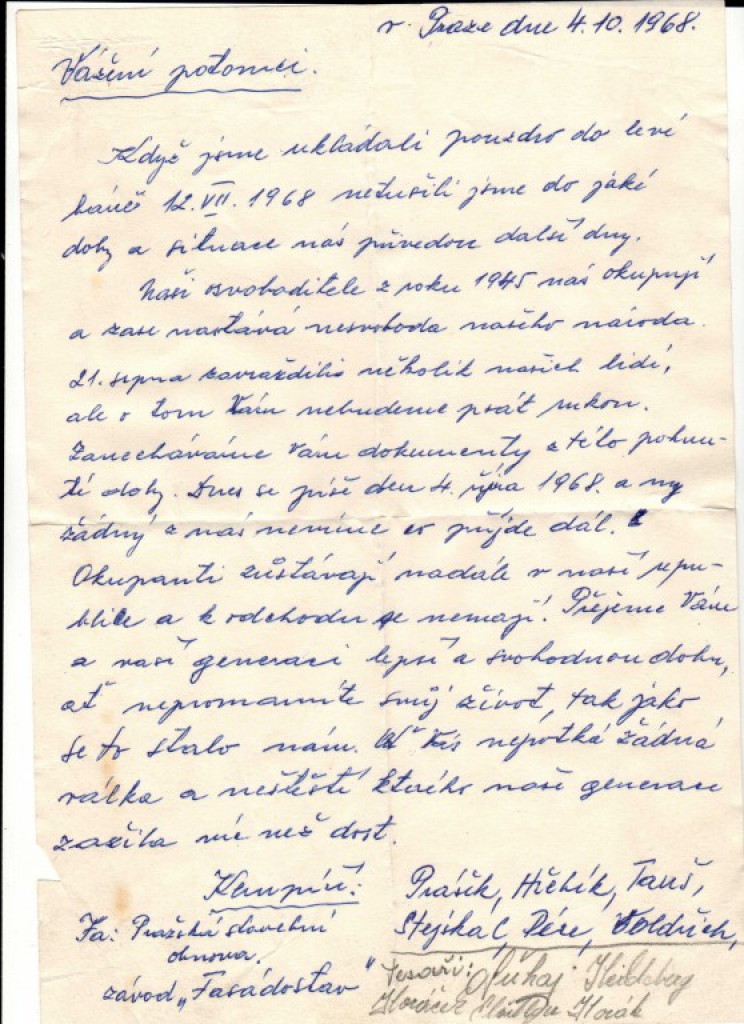 v. Praze dne 4.10.1968.
Vážení potomci.
Když jsme ukládali pouzdro do levé
báně 12. VII. 1968 netušili jsme do jaké
doby a situace nás přivedou další dny.
Naši osvoboditele z roku 1945 nás okupují
a zase nastává nesvoboda našeho národa.
21. srpna zavraždili několik našich lidí,
ale o tom Vám nebudeme psát rukou.
Zanecháváme Vám dokumenty z této pohnu-
té doby. Dnes se píše den 4. října 1968. a my
žádný z nás nevíme co příjde dál.
Okupanti zůstávají nadále v naší repu-
blice a k odchodu se nemají! Přejeme Vám
a vaší generaci lepší a svobodnou dobu,
ať nepromarníte svůj život, tak jako
se to stalo nám. Ať Vás nepotká žádná
válka a neštěstí kterého naše generace
zažila víc než dost.
Klempíři: Prášik, Hřebík, Tauš,
Fa: Pražská stavební Stejskal, Voldřich,
obnova.
závod „Fasádostav"
tesaři:
Horáček Horák